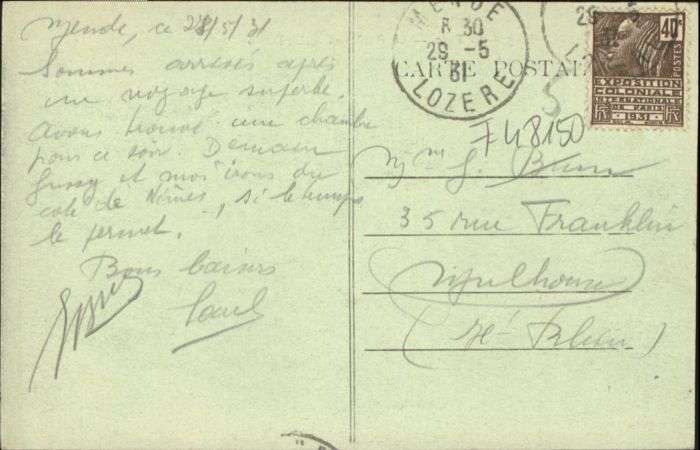 Mende, ce 28/5/31
Sommes arrivés après
un voyage superbe.
Avons trouvé une chambre
pour ce soir. Demain
et moi irons du
coté de Nîmes, si le temps
le permet.
Bons baisers
Paul
MENDE
30
29 -5
31
LOZERE
CARTE POSTALE
29
40c
POSTES
EXPOSITION
COLONIALE
INTERNATIONALE
DE PARIS
1931
F48150
Mme G.
35 rue Franklin
Mulhouse
(Ht Rhin)